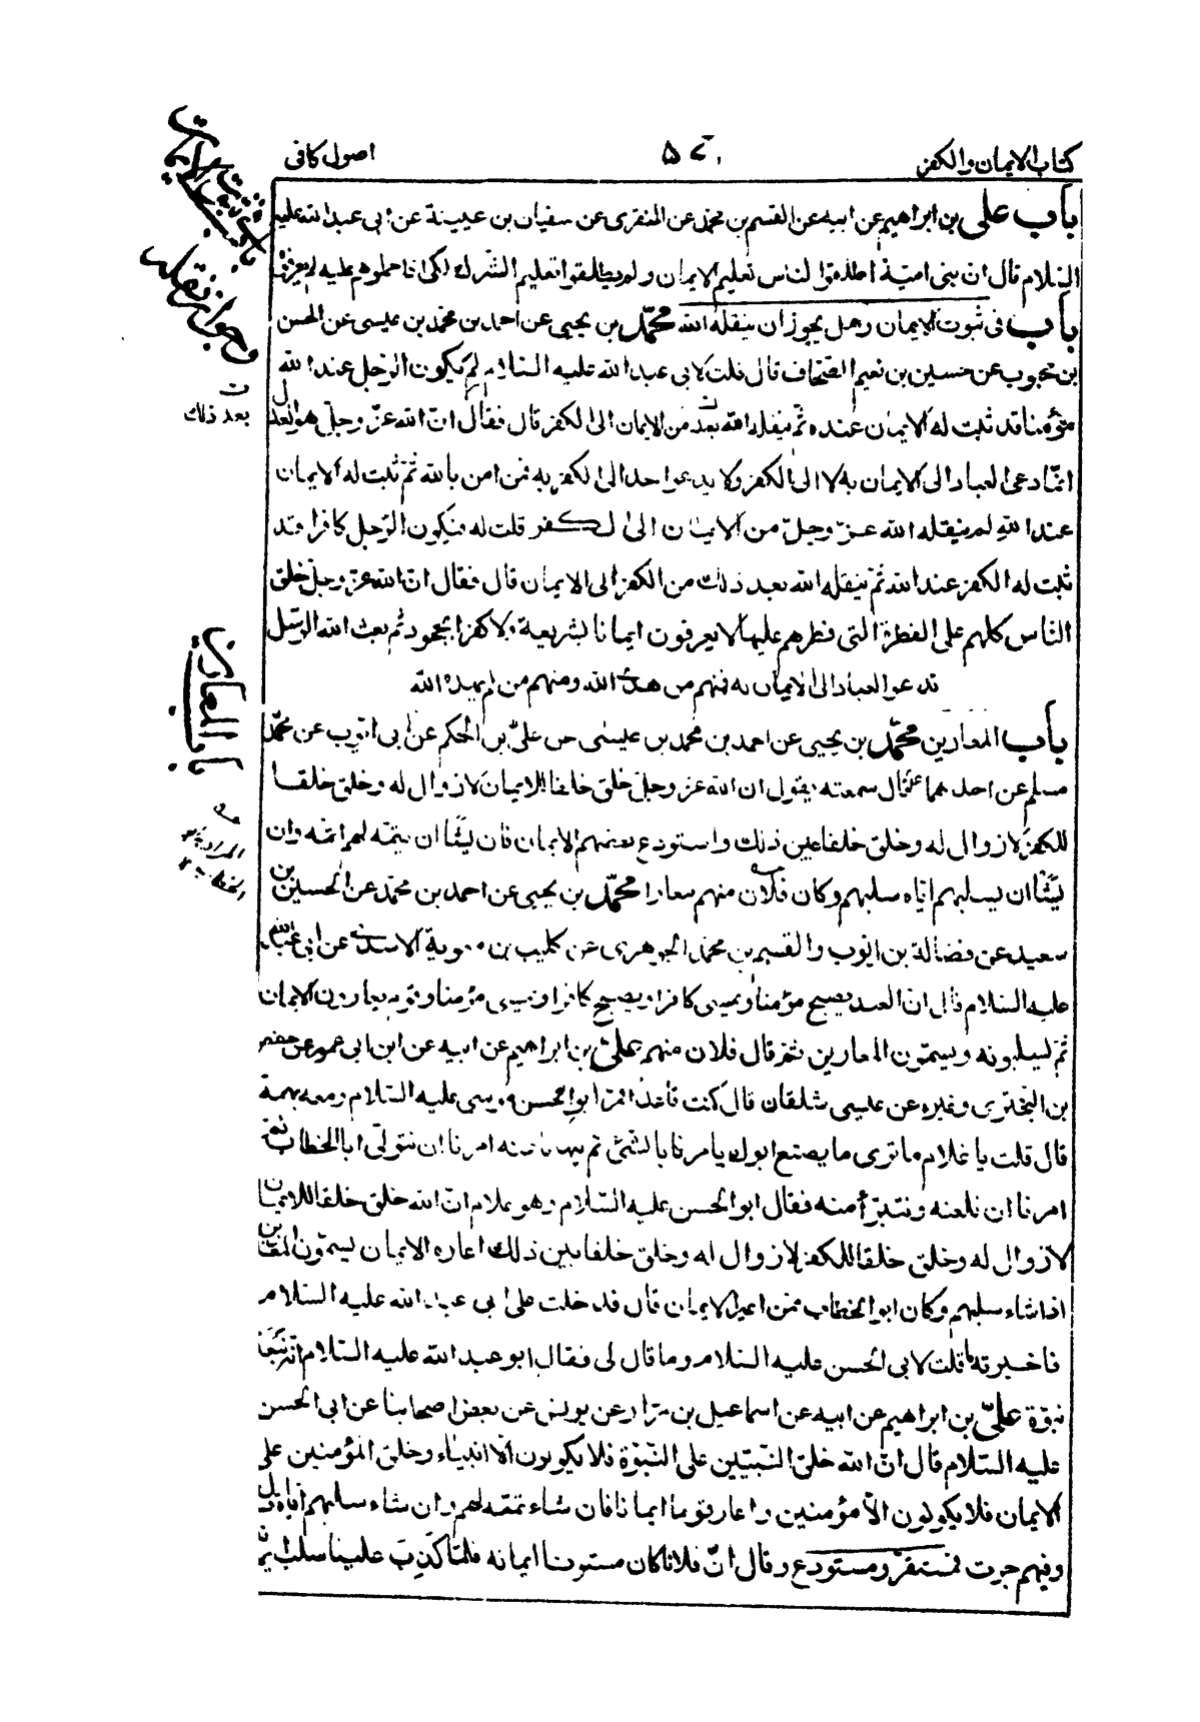 كتاب الايمان والكفر
اصول كافى
باب على بن ابراهيم عن ابيه عن القسم بن محمد عن المنقرى عن سفيان بن عيينة عن ابى عبد الله عليه
السلام قال ان بنى امية اطلقوا للناس تعليم الايمان ولم يطلقوا تعليم الشرك لكى اذا حملوهم عليه لم يعرفوه
باب فى ثبوت الايمان وهل يجوز ان ينقله الله محمد بن يحيى عن احمد بن محمد بن عيسى عن الحسن
بن محبوب عن حسين بن نعيم الصحاف قال قلت لابى عبد الله عليه السلام لم يكون الرجل عند الله
مؤمنا قد ثبت له الايمان عنده ثم ينقله الله بعد من الايمان الى الكفر قال فقال ان الله عز وجل هو العدل
انما دعى العباد الى الايمان به لا الى الكفر ولا يدعو احدا الى الكفر به فمن امن بالله ثم ثبت له الايمان
عند الله لم ينقله الله عز وجل من الايمان الى الكفر قلت له فيكون الرجل كافرا قد
ثبت له الكفر عند الله ثم ينقله الله بعد ذلك من الكفر الى الايمان قال فقال ان الله عز وجل خلق
الناس كلهم على الفطرة التى فطرهم عليها لا يعرفون ايمانا بشريعة ولا كفرا بجحود ثم بعث الله الرسل
تدعو العباد الى الايمان به فمنهم من هدى الله ومنهم من لم يهده الله
باب المعارين محمد بن يحيى عن احمد بن محمد بن عيسى عن على بن الحكم عن ابى ايوب عن محمد
مسلم عن احدهما ع قال سمعته يقول ان الله عز وجل خلق خلقا للايمان لا زوال له وخلق خلقا
للكفر لا زوال له وخلق خلقا بين ذلك واستودع بعضهم الايمان فان يشأ ان يتمه لهم اتمه وان
يشأ ان يسلبهم اياه سلبهم وكان فلان منهم معارا محمد بن يحيى عن احمد بن محمد عن الحسين بن
سعيد عن فضالة بن ايوب والقسم بن محمد الجوهرى عن كليب بن معوية الاسدى عن ابى عبد الله
عليه السلام قال ان العبد يصبح مؤمنا ويمسى كافرا ويصبح كافرا ويمسى مؤمنا وقوم يعارون الايمان
ثم يسلبونه ويسمون المعارين ثم قال فلان منهم على بن ابراهيم عن ابيه عن ابن ابى عمير عن حفص
بن البخترى وغيره عن عيسى شلقان قال كنت قاعدا فمر ابو الحسن موسى عليه السلام ومعه بهمة
قال قلت يا غلام ما ترى ما يصنع ابوك يامرنا بالشئ ثم ينهانا عنه امرنا ان نتولى ابا الخطاب ثم
امرنا ان نلعنه ونتبرأ منه فقال ابو الحسن عليه السلام وهو غلام ان الله خلق خلقا للايمان
لا زوال له وخلق خلقا للكفر لا زوال له وخلق خلقا بين ذلك اعاره الايمان يسمون المعارين
اذا شاء سلبهم وكان ابو الخطاب ممن اعير الايمان قال فدخلت على ابى عبد الله عليه السلام
فاخبرته ما قلت لابى الحسن عليه السلام وما قال لى فقال ابو عبد الله عليه السلام انه نبعة
نبوة على بن ابراهيم عن ابيه عن اسماعيل بن مرار عن يونس عن بعض اصحابنا عن ابى الحسن
عليه السلام قال ان الله خلق النبيين على النبوة فلا يكونون الا انبياء وخلق المؤمنين على
الايمان فلا يكونون الا مؤمنين واعار قوما ايمانا فان شاء تممه لهم وان شاء سلبهم اياه قال
وفيهم جرت فمستقر ومستودع وقال ان فلانا كان مستودعا ايمانه فلما كذب علينا سلب
باب ثبوت الايمان
وجواز نقله
بعد ذلك
باب المعارين